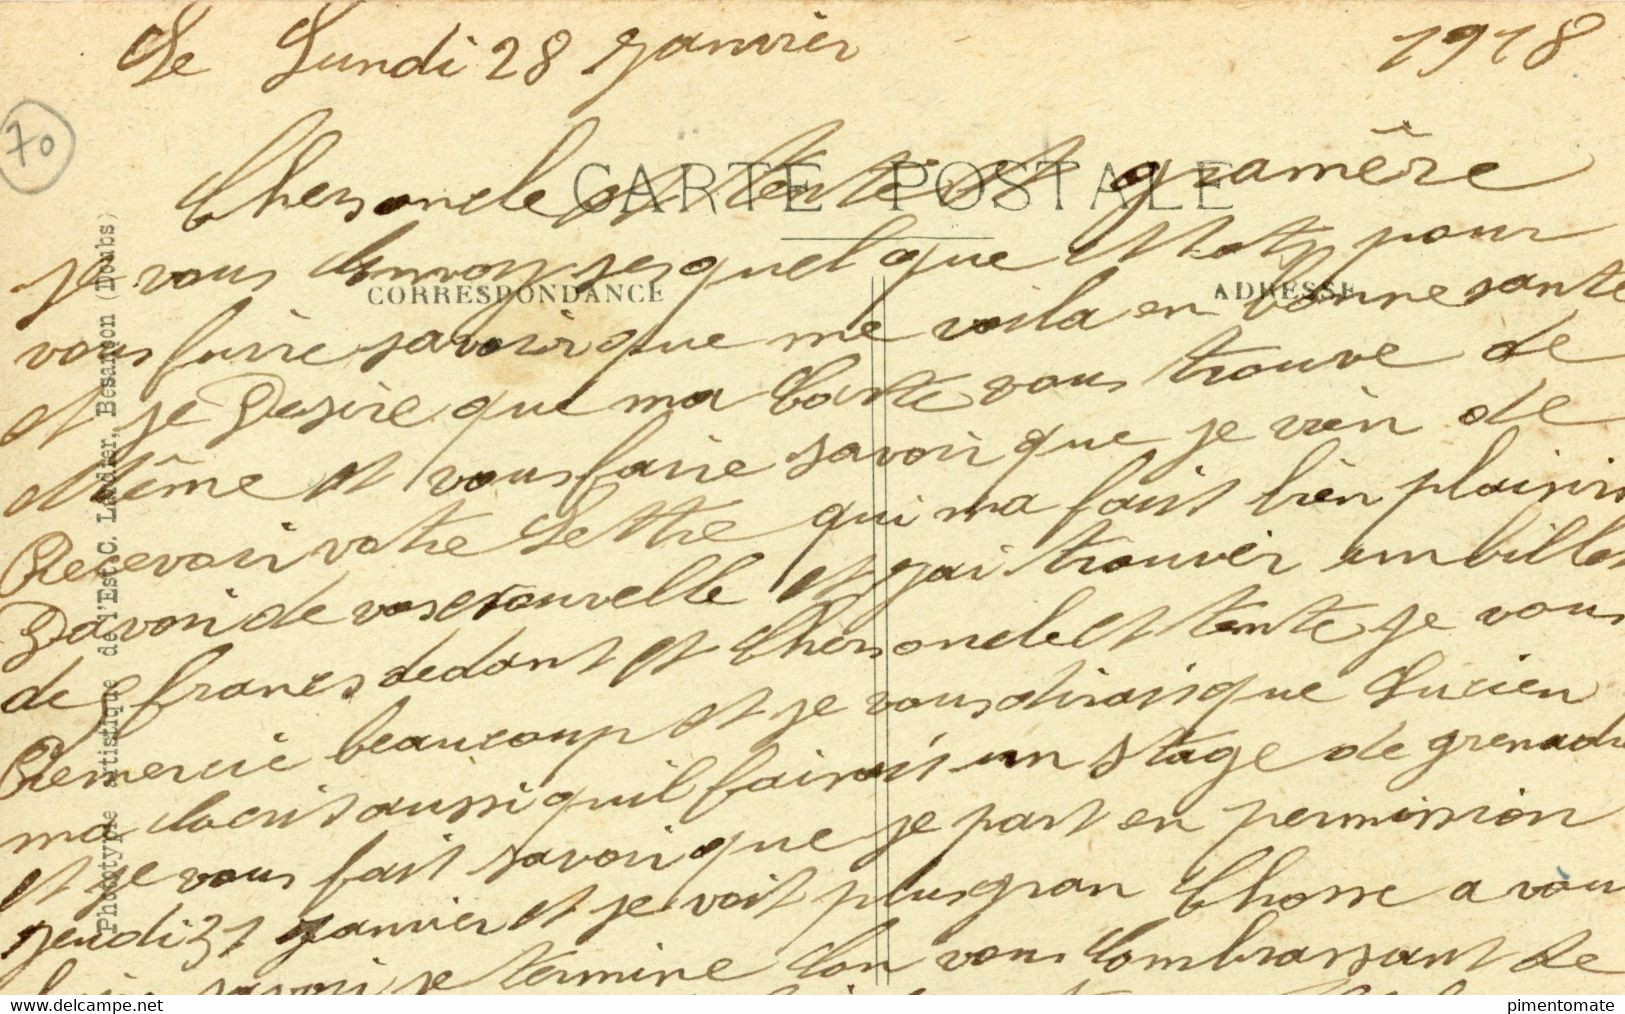 Le Lundi 28 Janvier 1918
70
CARTE POSTALE
Chers oncle et tente et gramêre
je vous envoyes quelque mots pour
CORRESPONDANCE
ADRESSE
vous faire savoir que me voila en bonne sante
et je Desire que ma Carte vous trouve de
Même et vous faire savoir que je vien de
Recevoir votre Lettre qui ma fait bien plaisir
Davoir de vos nouvelle et jai trouver un billet
de francs dedant et Chers oncle et tente je vous
Remercie beaucoup et je vous dirais que Lucien
ma écrit aussi quil fairait un stage de grenadi
et je vous fait savoir que je part en permission
jeudi 31 Janvier et je voit plus gran Chosse a vou
savoir je termine en vous embrassant de
Phototypie artistique de l'Est C. Lardier, Besançon (Doubs)
www.delcampe.net
pimentomate